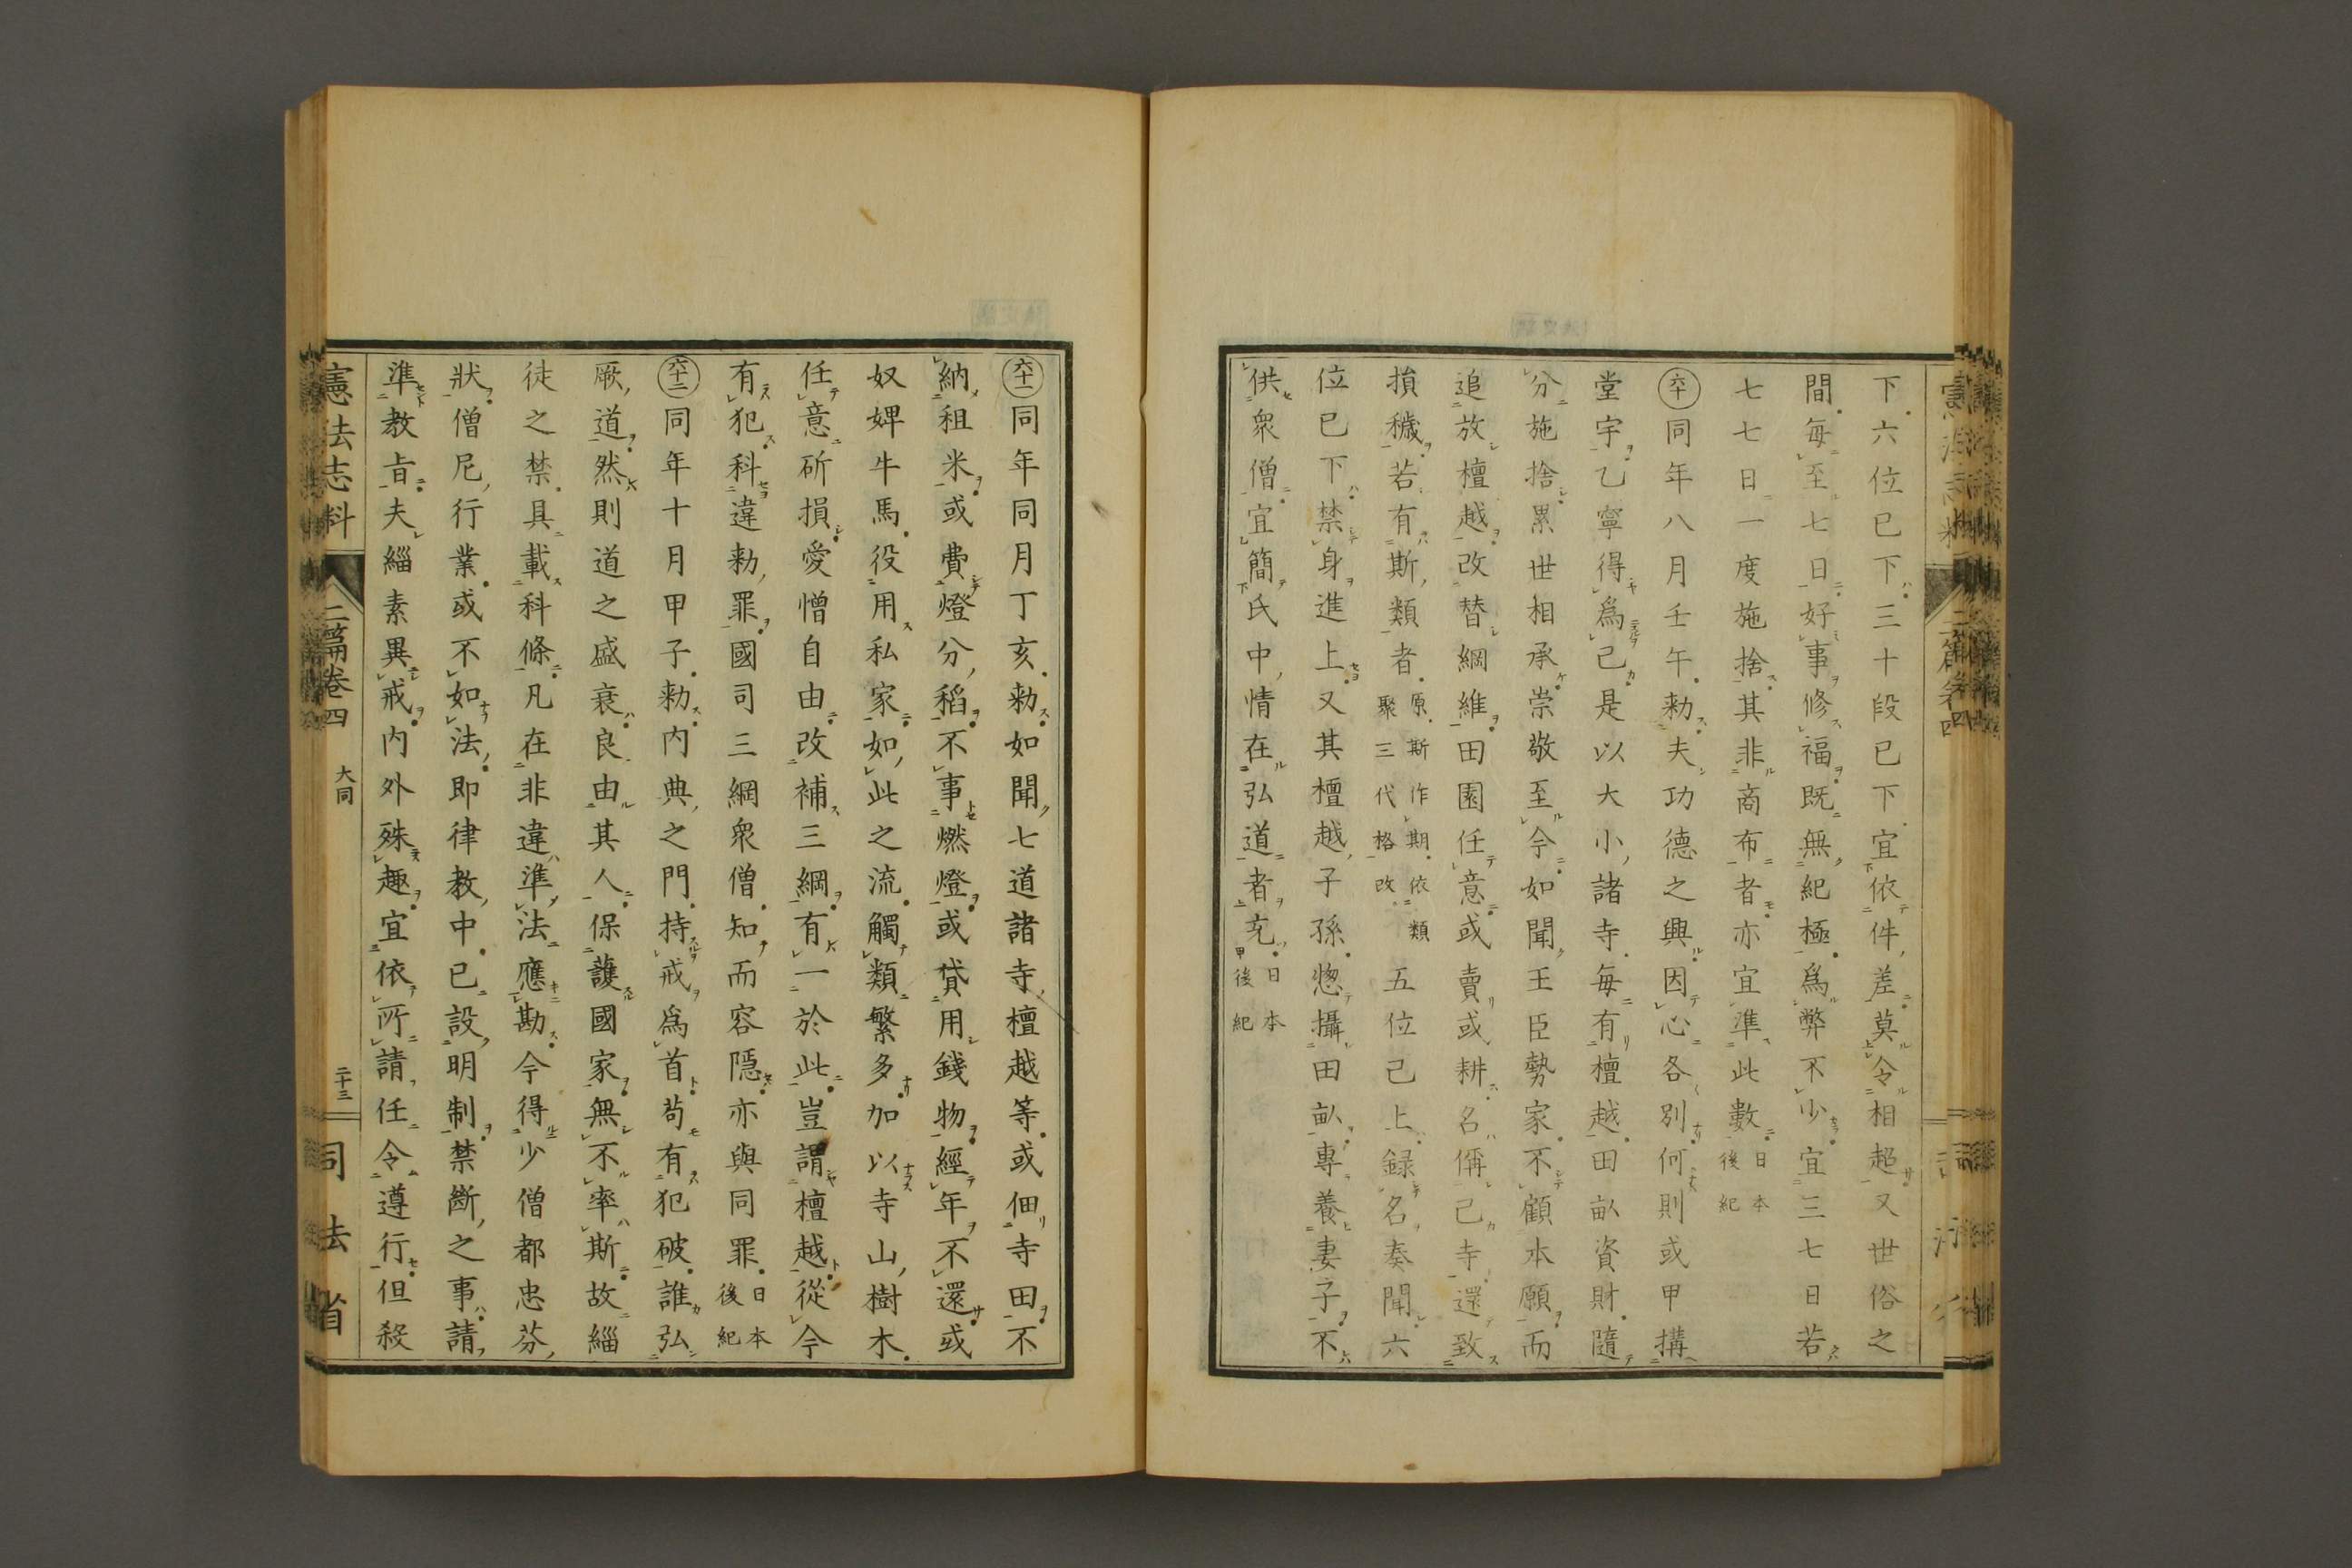 下六位已下三十段已下宜依件差莫令相超又世俗之
間毎至七日好事修福既無紀極爲弊不少宜三七日若
七七日一度施捨其非商布者亦宜準此數日本後紀
六十同年八月壬午勅夫功德之興因心各別何則或甲搆
堂宇乙寧得爲己是以大小諸寺毎有檀越田畝資財隨
分施捨累世相承崇敬至今如聞王臣勢家不顧本願而
追放檀越改替綱維田園任意或賣或耕名偁己寺還致
損穢若有斯類者原斯作期依類聚三代格改五位已上録名奏聞六
位已下禁身進上又其檀越子孫惣攝田畝專養妻子不
供衆僧宜簡氏中情在弘道者充日本後紀
六十一同年同月丁亥勅如聞七道諸寺檀越等或佃寺田不
納租米或費燈分稻不事燃燈或貸用錢物經年不還或
奴婢牛馬役用私家如此之流觸類繁多加以寺山樹木
任意斫損愛憎自由改補三綱有一於此豈謂檀越從今
有犯科違勅罪國司三綱衆僧知而容隱亦與同罪日本後紀
六十二同年十月甲子勅内典之門持戒爲首苟有犯破誰弘
厥道然則道之盛衰良由其人保護國家無不率斯故緇
徒之禁具載科條凡在非違準法應勘今得少僧都忠芬
狀僧尼行業或不如法即律教中已設明制禁斷之事請
準教旨夫緇素異戒内外殊趣宜依所請任令遵行但殺
憲法志料 二篇卷四 大同 二十三 司法省